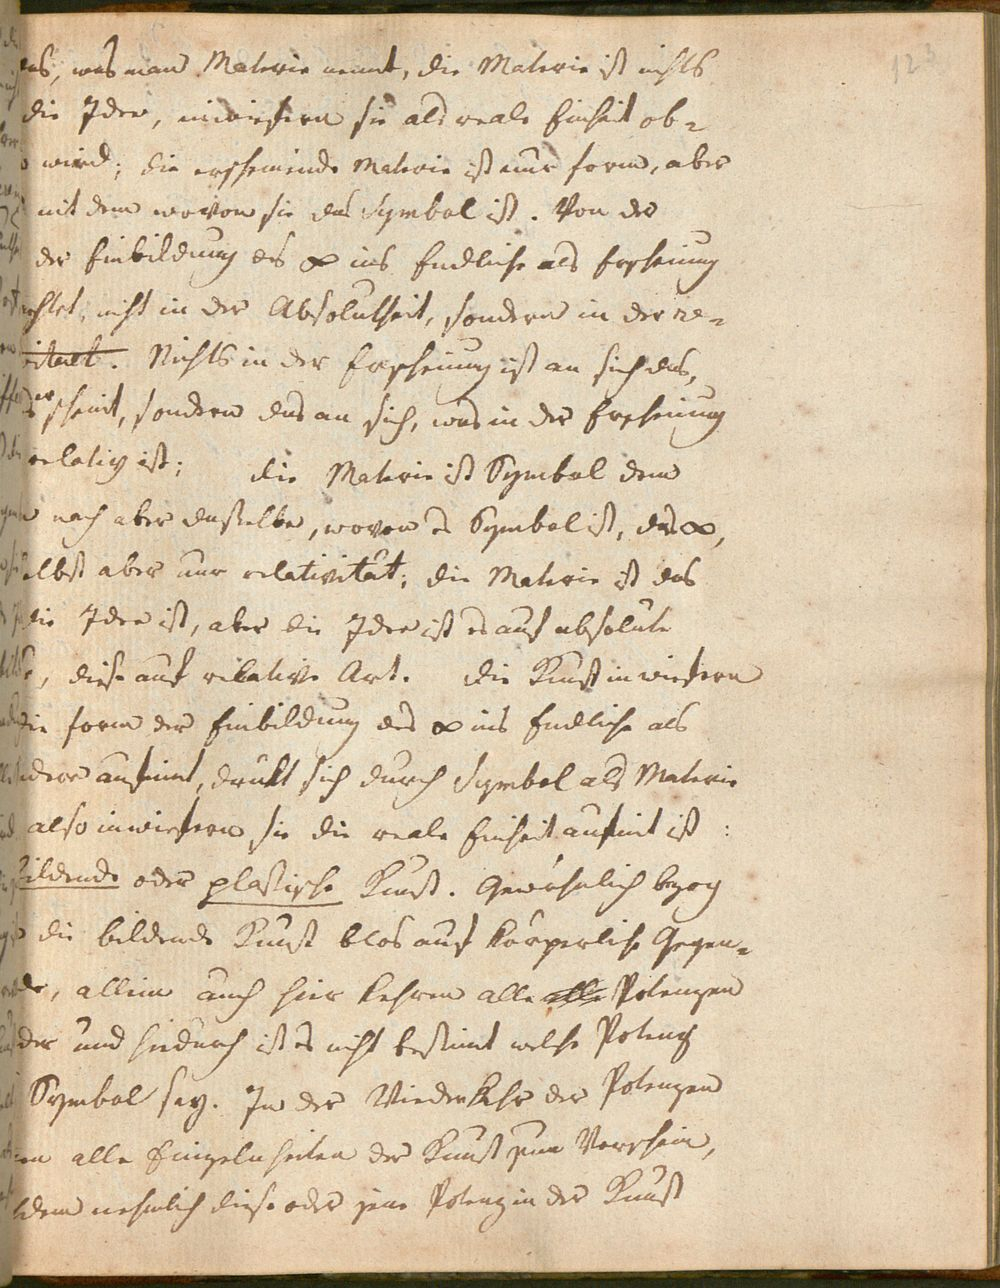 123
das, was man Materie nennt, die Materie ist nichts
die Idee, inwiefern sie als reale Einheit ob-
wird; die erscheinende Materie ist nur Form, aber
mit dem wovon sie das Symbol ist. Von der
der Einbildung des ∞ ins Endliche als Erscheinung
nicht in der Absolutheit, sondern in der re-
Nichts in der Erscheinung ist an sich das,
erscheint, sondern das an sich, was in der Erscheinung
relativ ist; die Materie ist Symbol dem
nach aber dasselbe, wovon es Symbol ist, das ∞,
selbst aber nur relativität; die Materie ist das
die Idee ist, aber die Idee ist es auf absolute
diese auf relative Art. Die Kunst inwiefern
die Form der Einbildung des ∞ ins Endliche als
aufnimt, drükt sich durch Symbol als Materie
also inwiefern sie die reale Einheit aufnimt ist :
bildende oder plastische Kunst. Gewöhnlich bezog
die bildende Kunst blos auf körperliche Gegen-
allein auch hier kehren alle Potenzen
und hiedurch ist es nicht bestimt welche Potenz
Symbol sey. In der Wiederkehr der Potenzen
alle Einzelnheiten der Kunst zum Vorschein,
nehmlich diese oder jene Potenz in der Kunst